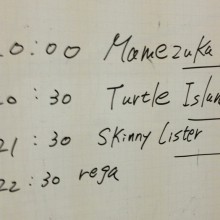 20:00 Mamezuka
20:30 Turtle Island
21:30 Skinny Lister
22:30 rega